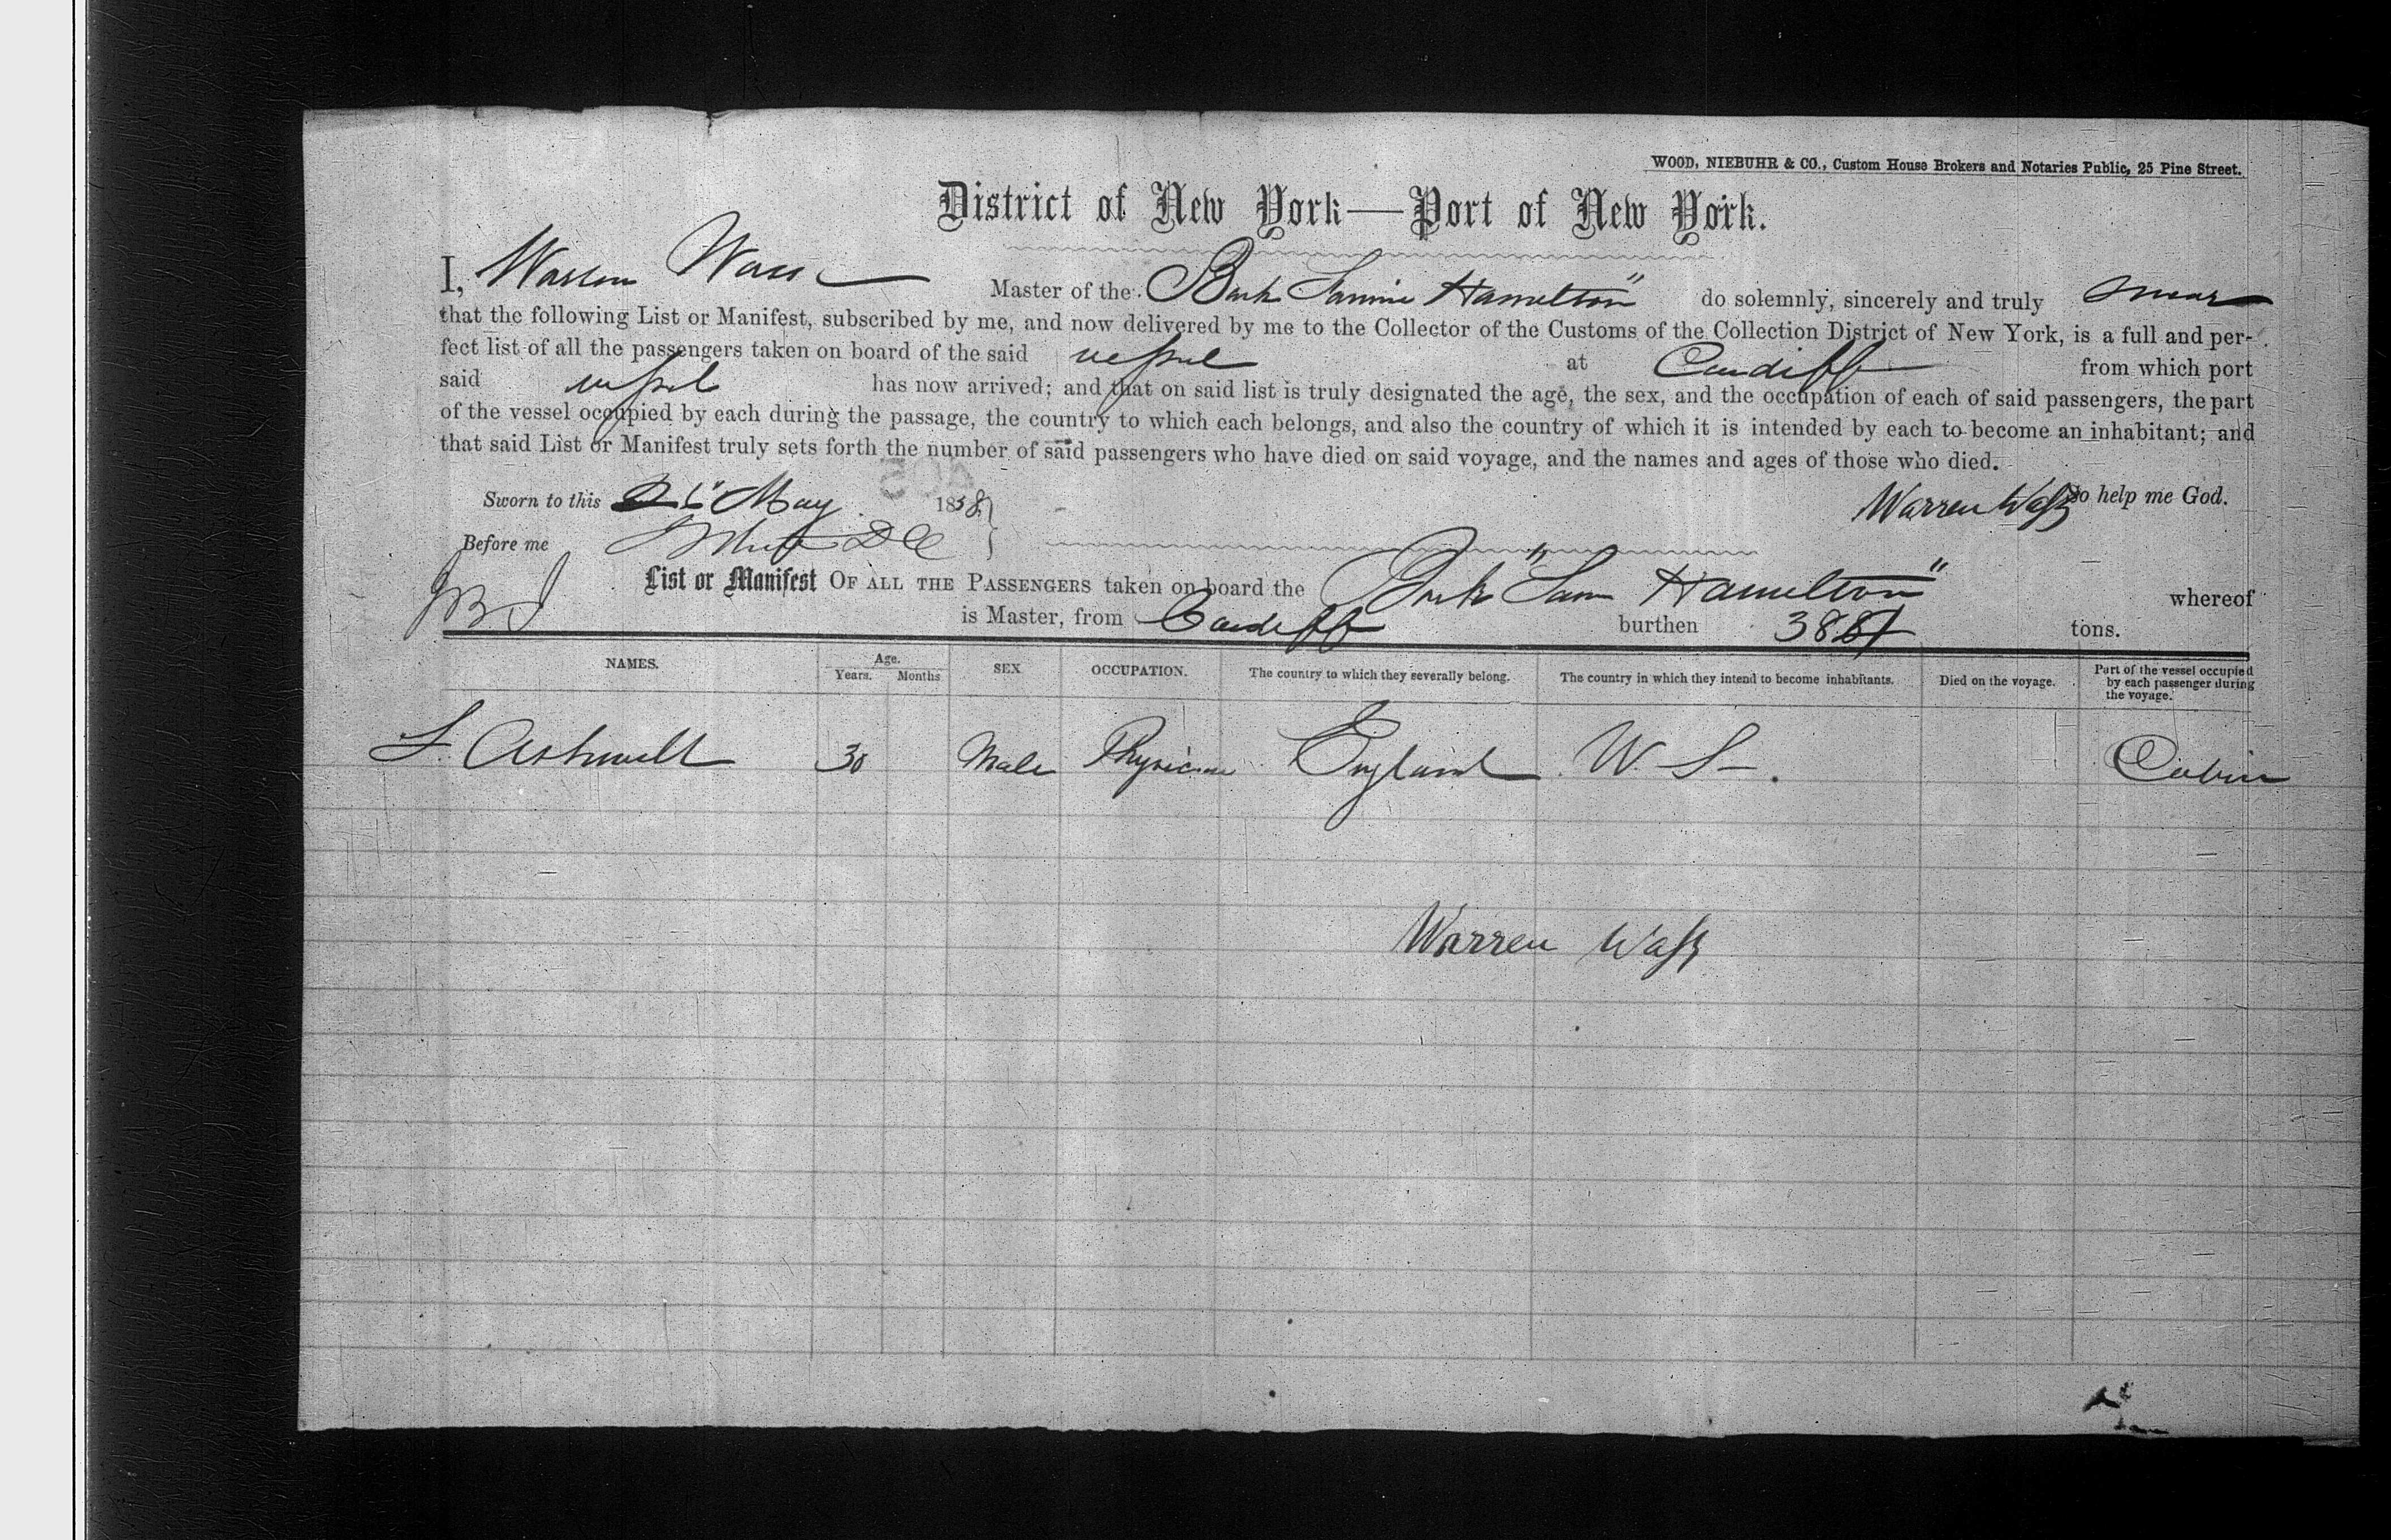 WOOD, NIEBUHR & CO., Custom House Brokers and Notaries Public, 25 Pine Street.
District of New York—Port of New York.
I, Warren Wass Master of the Bark Hamilton" do solemnly, sincerely and truly swear
that the following List or Manifest, subscribed by me, and now delivered by me to the Collector of the Customs of the Collection District of New York, is a full and per-
fect list of all the passengers taken on board of the said vessel at Cardiff from which port
said vessel has now arrived; and that on said list is truly designated the age, the sex, and the occupation of each of said passengers, the part
of the vessel occupied by each during the passage, the country to which each belongs, and also the country of which it is intended by each to become an inhabitant; and
that said List or Manifest truly sets forth the number of said passengers who have died on said voyage, and the names and ages of those who died.
Sworn to this May 1858 Warren Wass So help me God.
Before me
List or Manifest OF ALL THE PASSENGERS taken on board the Bark " Hamilton" whereof
is Master, from Cardiff burthen tons.
NAMES. Age. Years. Months SEX OCCUPATION. The country to which they severally belong. The country in which they intend to become inhabitants. Died on the voyage. Part of the vessel occupied by each passenger during the voyage.
Ashwell 30 Male Physician England U. S. Cabin
Warren Wass